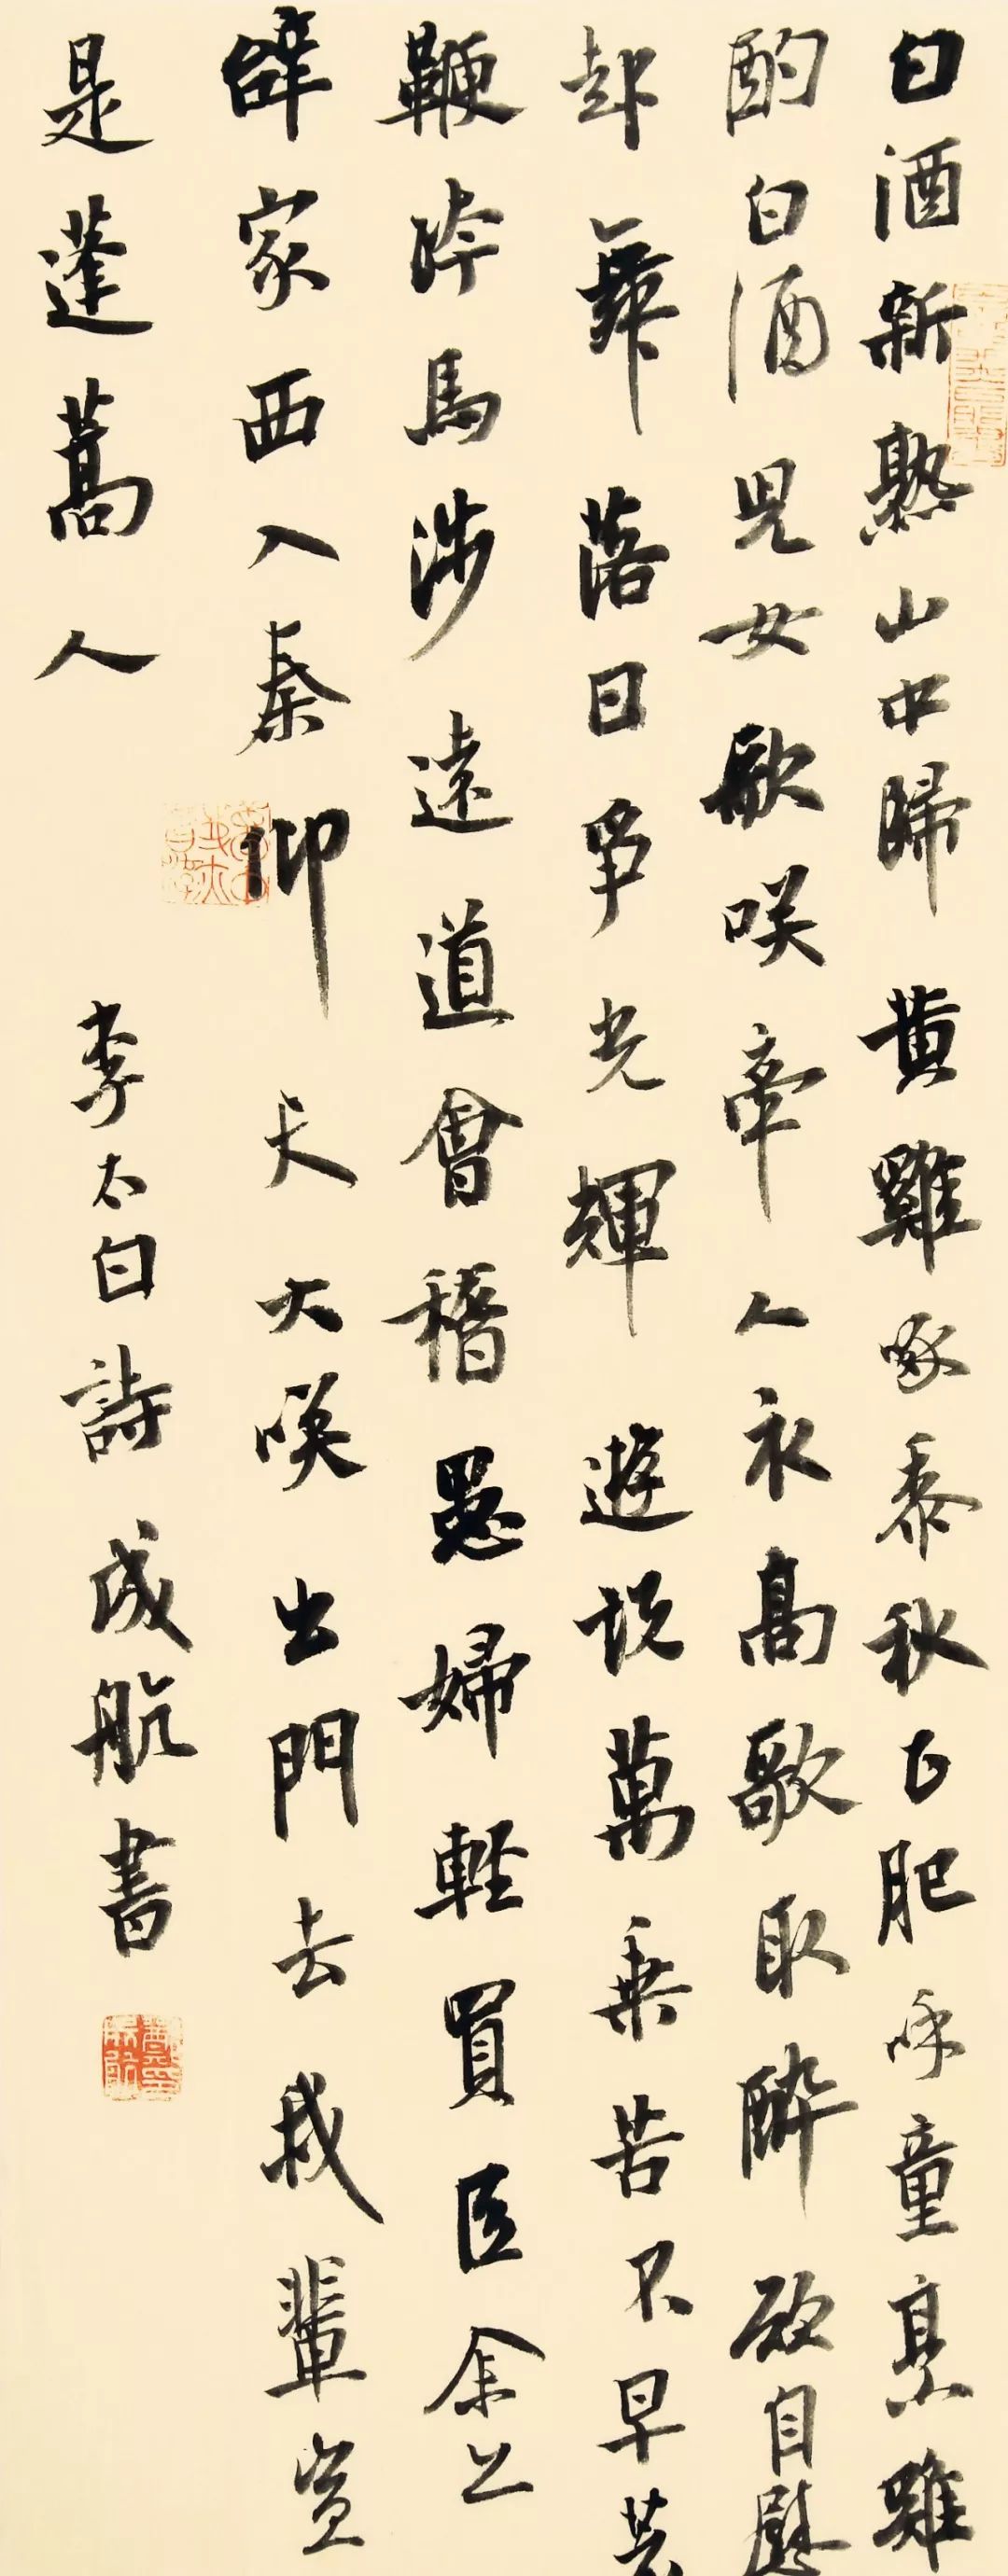 白酒新熟山中歸黄雞啄黍秋正肥呼童烹雞
酌白酒兒女歌咲牽人衣高歌取醉欲自慰
起舞落日爭光輝遊説萬乘苦不早著
鞭跨馬涉遠道會稽愚婦輕買臣余亦
辭家西入秦仰天大笑出門去我輩豈
是蓬蒿人
李太白詩成航書